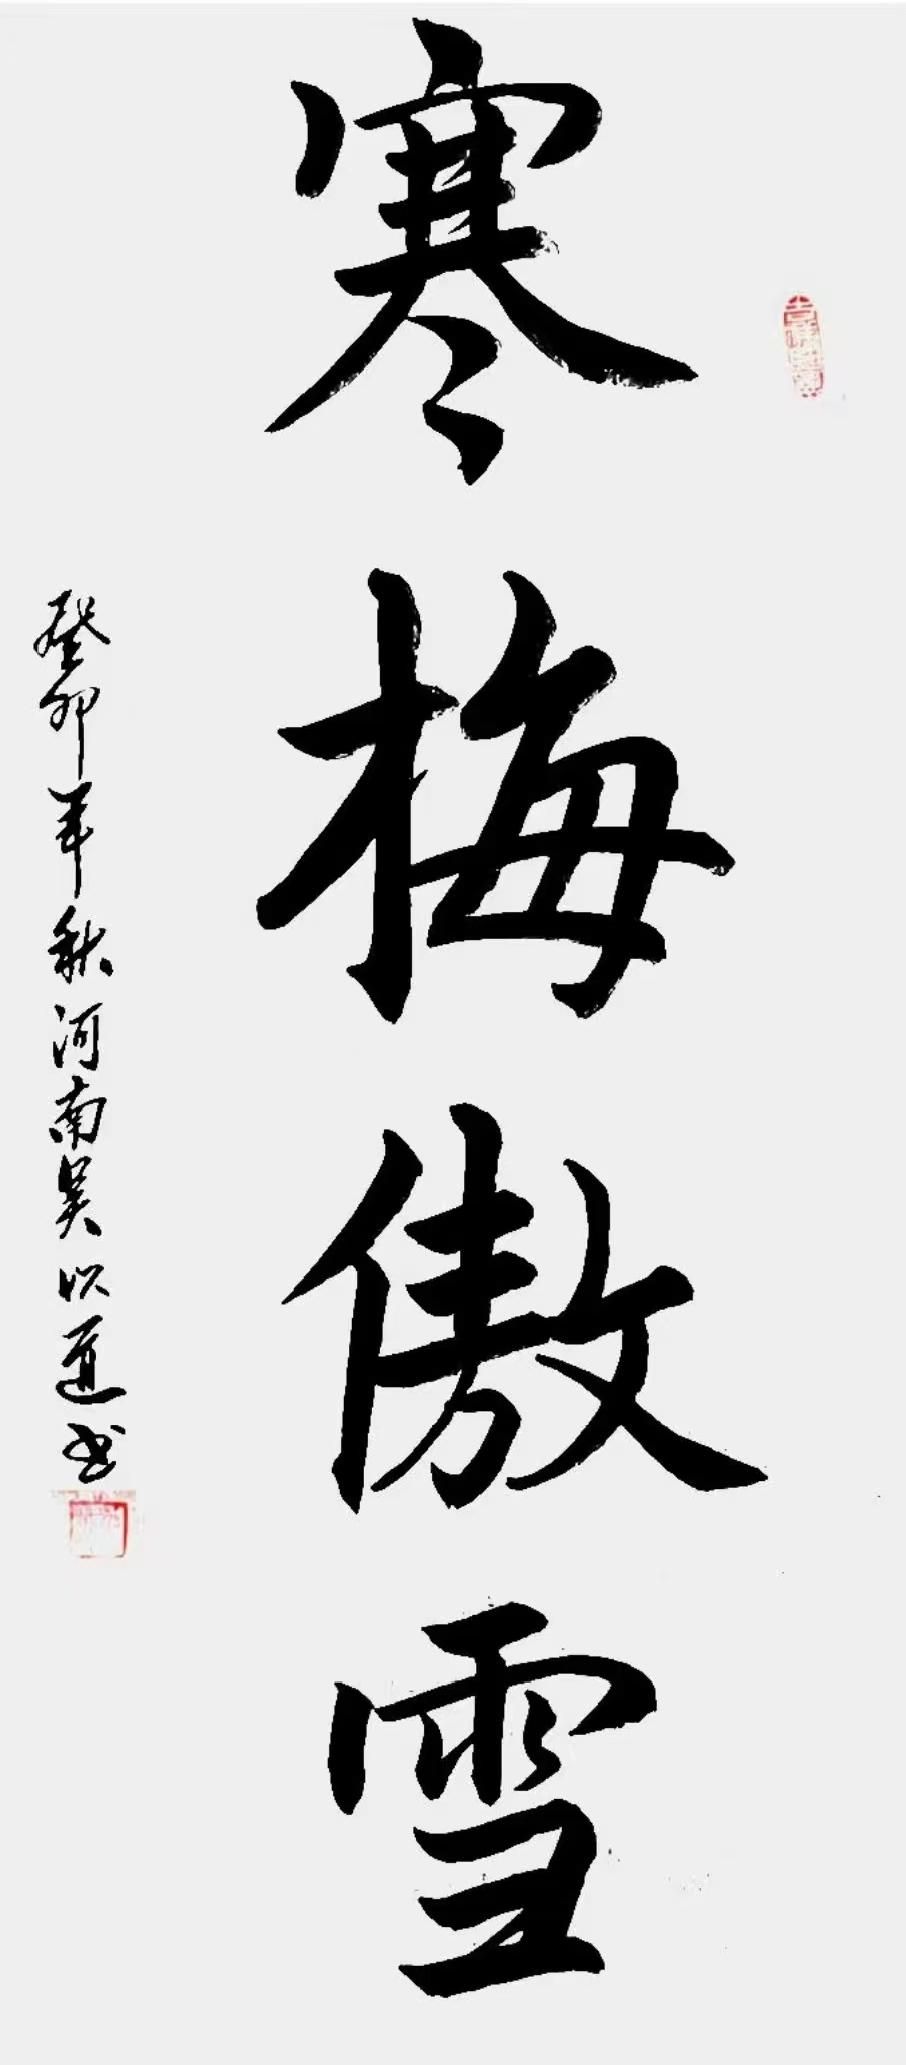 寒梅傲雪
癸卯年秋河南吴以道书